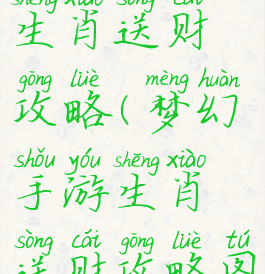 shēng xiāo sòng cái
生肖送财
gōng lüè mèng huàn
攻略(梦幻
shǒu yóu shēng xiào
手游生肖
sòng cái gōng lüè tú
送财攻略图